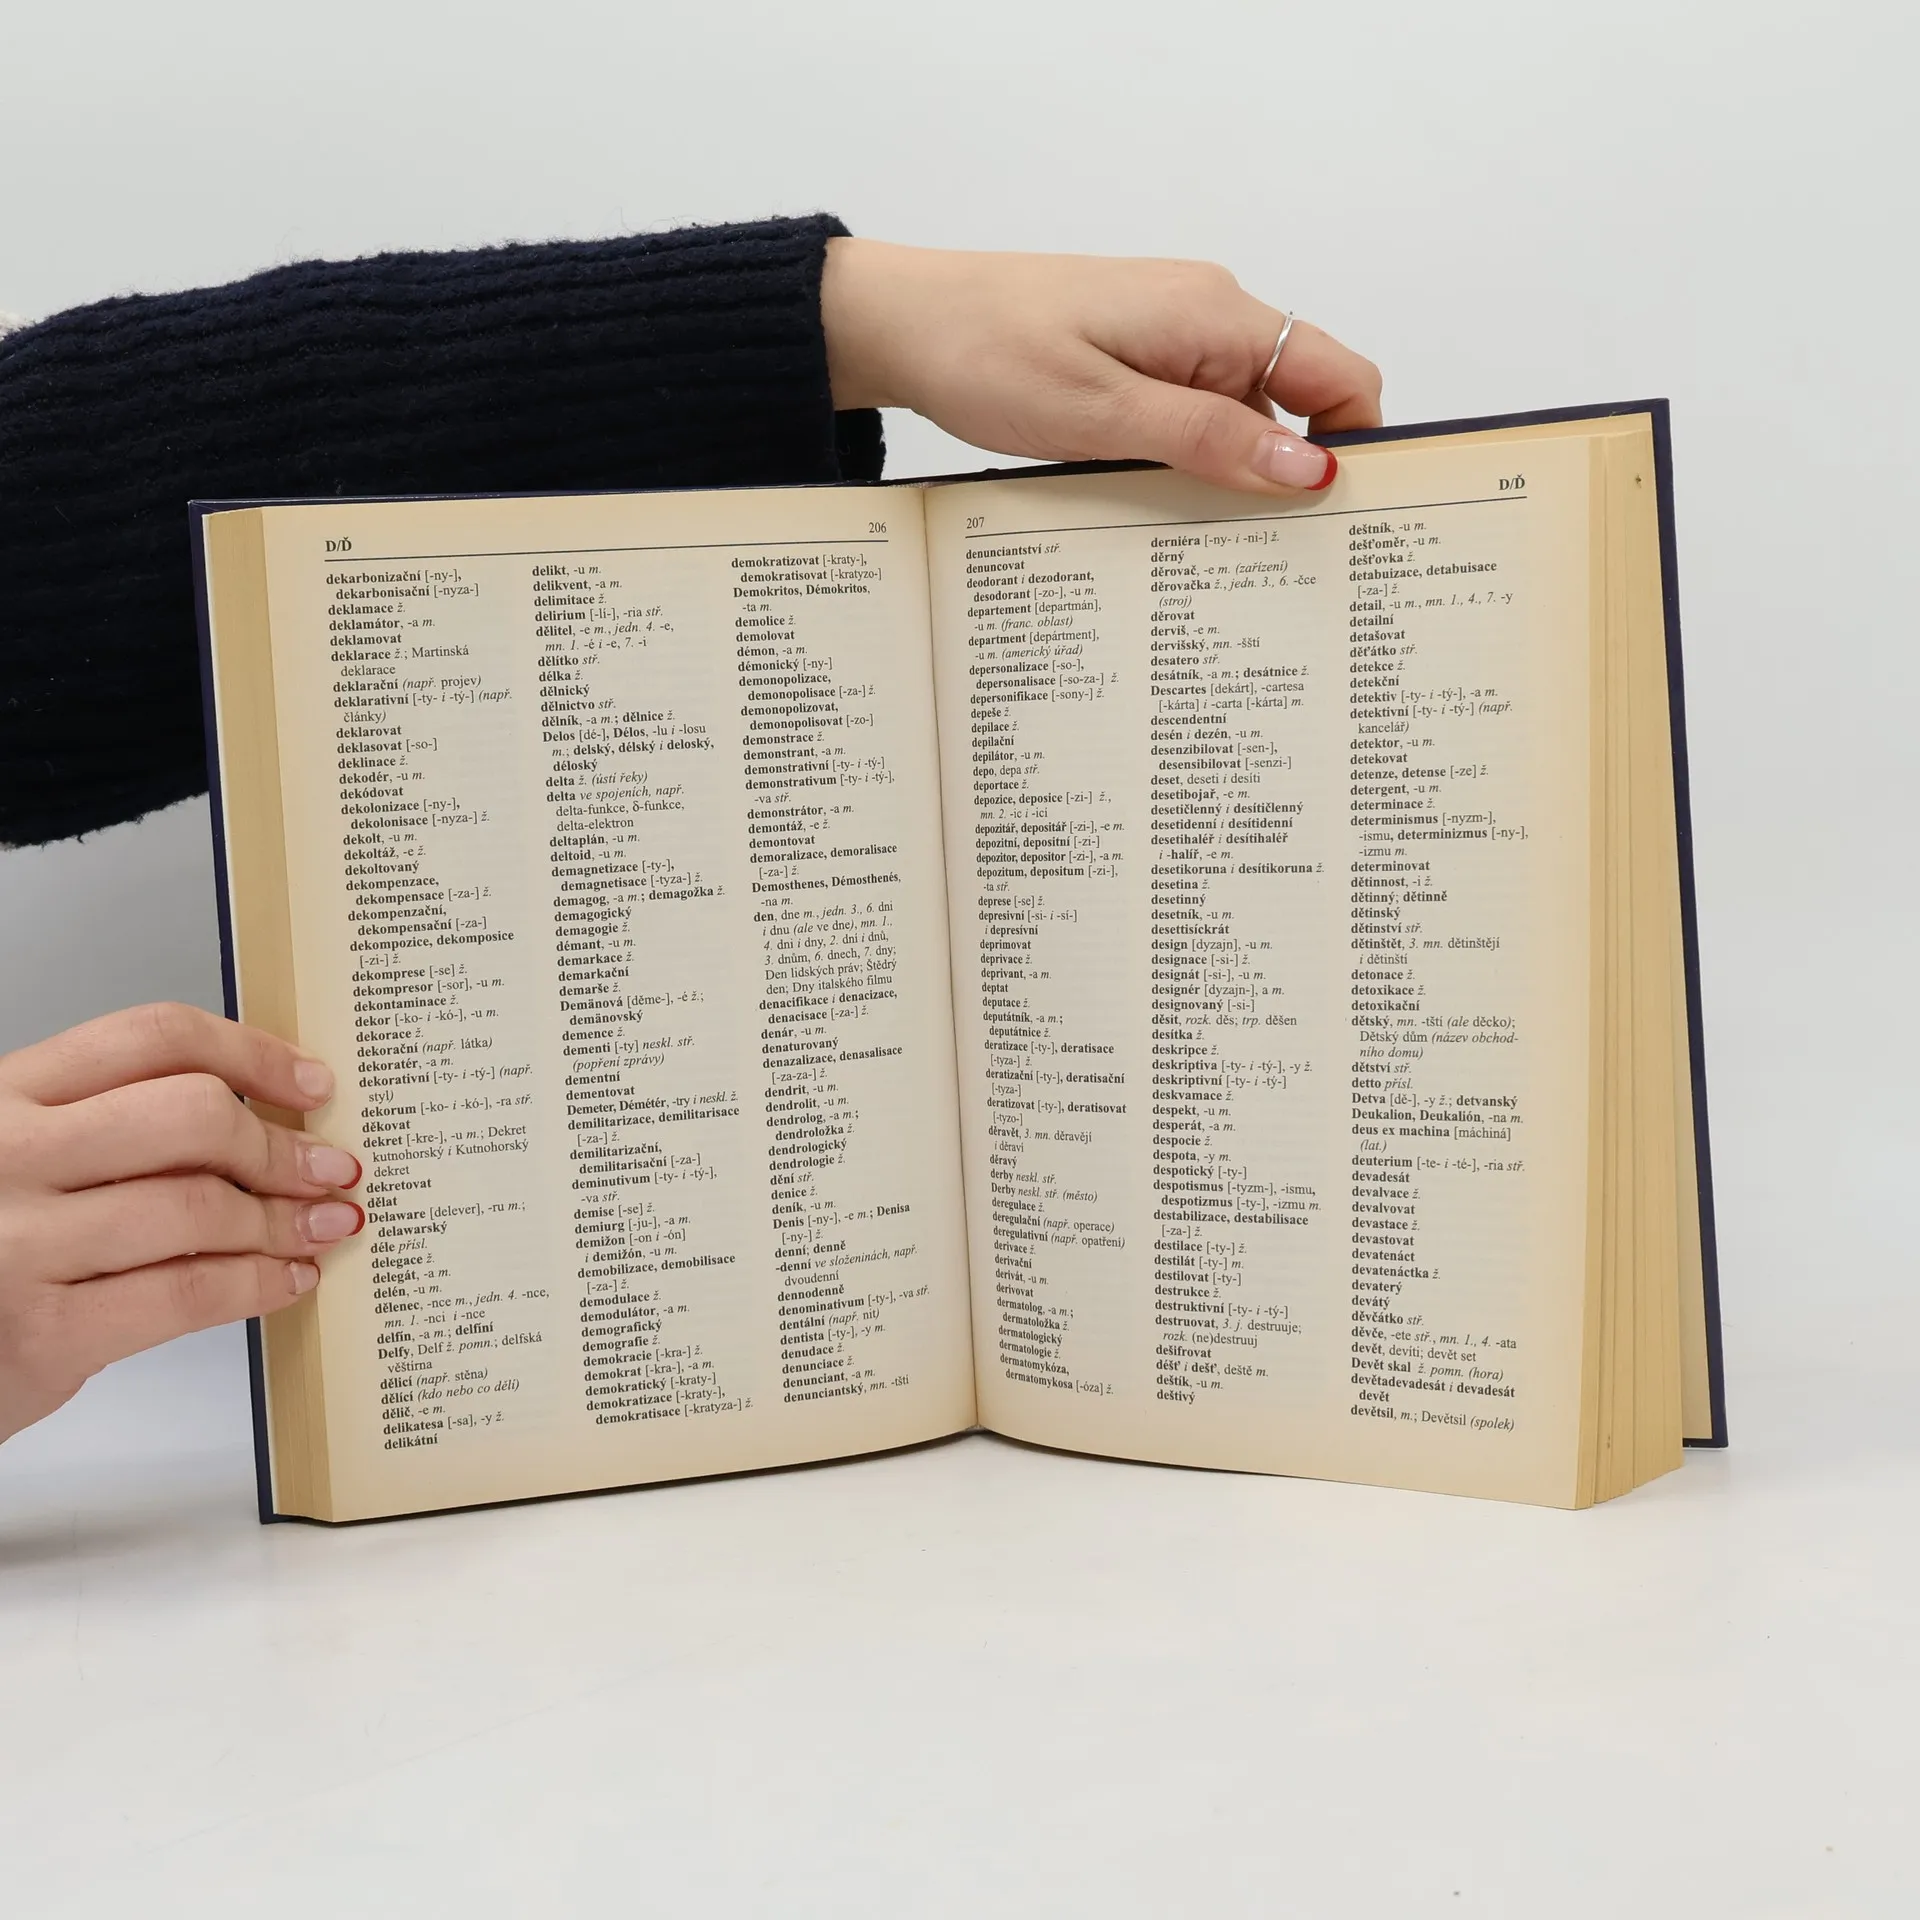 D/Ď
206
dekarbonizační [-ny-],
dekarbonisační [-nyza-]
deklamace ž.
deklamátor, -a m.
deklamovat
deklarace ž.; Martinská
deklarace
deklarační (např. projev)
deklarativní [-ty- i -tý-] (např.
články)
deklarovat
deklasovat [-so-]
deklinace ž.
dekodér, -u m.
dekódovat
dekolonizace [-ny-],
dekolonisace [-nyza-] ž.
dekolt, -u m.
dekoltáž, -e ž.
dekoltovaný
dekompenzace,
dekompensace [-za-] ž.
dekompenzační,
dekompensační [-za-]
dekompozice, dekomposice
[-zi-] ž.
dekomprese [-se] ž.
dekompresor [-sor], -u m.
dekontaminace ž.
dekor [-ko- i -kó-], -u m.
dekorace ž.
dekorační (např. látka)
dekoratér, -a m.
dekorativní [-ty- i -tý-] (např.
styl)
dekorum [-ko- i -kó-], -ra stř.
děkovat
dekret [-kre-], -u m.; Dekret
kutnohorský i Kutnohorský
dekret
dekretovat
dělat
Delaware [delever], -ru m.;
delawarský
déle přísl.
delegace ž.
delegát, -a m.
delén, -u m.
dělenec, -nce m., jedn. 4. -nce,
mn. 1. -nci i -nce
delfín, -a m.; delfíní
Delfy, Delf ž. pomn.; delfská
věštírna
dělicí (např. stěna)
dělící (kdo nebo co dělí)
dělič, -e m.
delikatesa [-sa], -y ž.
delikátní
delikt, -u m.
delikvent, -a m.
delimitace ž.
delirium [-lí-], -ria stř.
dělitel, -e m., jedn. 4. -e,
mn. 1. -é i -e, 7. -i
dělítko stř.
délka ž.
dělnický
dělnictvo stř.
dělník, -a m.; dělnice ž.
Delos [dé-], Délos, -lu i -losu
m.; delský, délský i deloský,
déloský
delta ž. (ústí řeky)
delta ve spojeních, např.
delta-funkce, δ-funkce,
delta-elektron
deltaplán, -u m.
deltoid, -u m.
demagnetizace [-ty-],
demagnetisace [-tyza-] ž.
demagog, -a m.; demagožka ž.
demagogický
demagogie ž.
démant, -u m.
demarkace ž.
demarkační
demarše ž.
Demänová [děme-], -é ž.;
demänovský
demence ž.
dementi [-ty] neskl. stř.
(popření zprávy)
dementní
dementovat
Demeter, Démétér, -try i neskl. ž.
demilitarizace, demilitarisace
[-za-] ž.
demilitarizační,
demilitarisační [-za-]
deminutivum [-ty- i -tý-],
-va stř.
demise [-se] ž.
demiurg [-ju-], -a m.
demižon [-on i -ón]
i demižón, -u m.
demobilizace, demobilisace
[-za-] ž.
demodulace ž.
demodulátor, -a m.
demografický
demografie ž.
demokracie [-kra-] ž.
demokrat [-kra-], -a m.
demokratický [-kraty-]
demokratizace [-kraty-],
demokratisace [-kratyza-] ž.
demokratizovat [-kraty-],
demokratisovat [-kratyzo-]
Demokritos, Démokritos,
-ta m.
demolice ž.
demolovat
démon, -a m.
démonický [-ny-]
demonopolizace,
demonopolisace [-za-] ž.
demonopolizovat,
demonopolisovat [-zo-]
demonstrace ž.
demonstrant, -a m.
demonstrativní [-ty- i -tý-]
demonstrativum [-ty- i -tý-],
-va stř.
demonstrátor, -a m.
demontáž, -e ž.
demontovat
demoralizace, demoralisace
[-za-] ž.
Demosthenes, Démosthenés,
-na m.
den, dne m., jedn. 3., 6. dni
i dnu (ale ve dne), mn. 1.,
4. dni i dny, 2. dní i dnů,
3. dnům, 6. dnech, 7. dny;
Den lidských práv; Štědrý
den; Dny italského filmu
denacifikace i denacizace,
denacisace [-za-] ž.
denár, -u m.
denaturovaný
denazalizace, denasalisace
[-za-za-] ž.
dendrit, -u m.
dendrolit, -u m.
dendrolog, -a m.;
dendroložka ž.
dendrologický
dendrologie ž.
dění stř.
denice ž.
deník, -u m.
Denis [-ny-], -e m.; Denisa
[-ny-] ž.
denní; denně
-denní ve složeninách, např.
dvoudenní
dennodenně
denominativum [-ty-], -va stř.
dentální (např. nit)
dentista [-ty-], -y m.
denudace ž.
denunciace ž.
denunciant, -a m.
denunciantský, mn. -tští
207
D/Ď
denunciantství stř.
denuncovat
deodorant i dezodorant,
desodorant [-zo-], -u m.
departement [departmán],
-u m. (franc. oblast)
department [depártment],
-u m. (americký úřad)
depersonalizace [-so-],
depersonalisace [-so-za-] ž.
depersonifikace [-sony-] ž.
depeše ž.
depilace ž.
depilační
depilátor, -u m.
depo, depa stř.
deportace ž.
depozice, deposice [-zi-] ž.,
mn. 2. -ic i -icí
depozitář, depositář [-zi-], -e m.
depozitní, depositní [-zi-]
depozitor, depositor [-zi-], -a m.
depozitum, depositum [-zi-],
-ta stř.
deprese [-se] ž.
depresivní [-si- i -sí-]
i depresívní
deprimovat
deprivace ž.
deprivant, -a m.
deptat
deputace ž.
deputátník, -a m.;
deputátnice ž.
deratizace [-ty-], deratisace
[-tyza-] ž.
deratizační [-ty-], deratisační
[-tyza-]
deratizovat [-ty-], deratisovat
[-tyzo-]
děravět, 3. mn. děravějí
i děraví
děravý
derby neskl. stř.
Derby neskl. stř. (město)
deregulace ž.
deregulační (např. operace)
deregulativní (např. opatření)
derivace ž.
derivační
derivát, -u m.
derivovat
dermatolog, -a m.;
dermatoložka ž.
dermatologický
dermatologie ž.
dermatomykóza,
dermatomykosa [-óza] ž.
derniéra [-ny- i -ni-] ž.
děrný
děrovač, -e m. (zařízení)
děrovačka ž., jedn. 3., 6. -čce
(stroj)
děrovat
derviš, -e m.
dervišský, mn. -šští
desatero stř.
desátník, -a m.; desátnice ž.
Descartes [dekárt], -cartesa
[-kárta] i -carta [-kárta] m.
descendentní
desén i dezén, -u m.
desenzibilovat [-sen-],
desensibilovat [-senzi-]
deset, deseti i desíti
desetibojař, -e m.
desetičlenný i desítičlenný
desetidenní i desítidenní
desetihaléř i desítihaléř
i -halíř, -e m.
desetikoruna i desítikoruna ž.
desetina ž.
desetinný
desetník, -u m.
desettisíckrát
design [dyzajn], -u m.
designace [-si-] ž.
designát [-si-], -u m.
designér [dyzajn-], a m.
designovaný [-si-]
děsit, rozk. děs; trp. děšen
desítka ž.
deskripce ž.
deskriptiva [-ty- i -tý-], -y ž.
deskriptivní [-ty- i -tý-]
deskvamace ž.
despekt, -u m.
desperát, -a m.
despocie ž.
despota, -y m.
despotický [-ty-]
despotismus [-tyzm-], -ismu,
despotizmus [-ty-], -izmu m.
destabilizace, destabilisace
[-za-] ž.
destilace [-ty-] ž.
destilát [-ty-] m.
destilovat [-ty-]
destrukce ž.
destruktivní [-ty- i -tý-]
destruovat, 3. j. destruuje;
rozk. (ne)destruuj
dešifrovat
déšť i dešť, deště m.
deštík, -u m.
deštivý
deštník, -u m.
dešťoměr, -u m.
dešťovka ž.
detabuizace, detabuisace
[-za-] ž.
detail, -u m., mn. 1., 4., 7. -y
detailní
detašovat
děťátko stř.
detekce ž.
detekční
detektiv [-ty- i -tý-], -a m.
detektivní [-ty- i -tý-] (např.
kancelář)
detektor, -u m.
detekovat
detenze, detense [-ze] ž.
detergent, -u m.
determinace ž.
determinismus [-nyzm-],
-ismu, determinizmus [-ny-],
-izmu m.
determinovat
dětinnost, -i ž.
dětinný; dětinně
dětinský
dětinství stř.
dětinštět, 3. mn. dětinštějí
i dětinští
detonace ž.
detoxikace ž.
detoxikační
dětský, mn. -tští (ale děcko);
Dětský dům (název obchod-
ního domu)
dětství stř.
detto přísl.
Detva [dě-], -y ž.; detvanský
Deukalion, Deukalión, -na m.
deus ex machina [máchiná]
(lat.)
deuterium [-te- i -té-], -ria stř.
devadesát
devalvace ž.
devalvovat
devastace ž.
devastovat
devatenáct
devatenáctka ž.
devaterý
devátý
děvčátko stř.
děvče, -ete stř., mn. 1., 4. -ata
devět, devíti; devět set
Devět skal ž. pomn. (hora)
devětadevadesát i devadesát
devět
devětsil, m.; Devětsil (spolek)